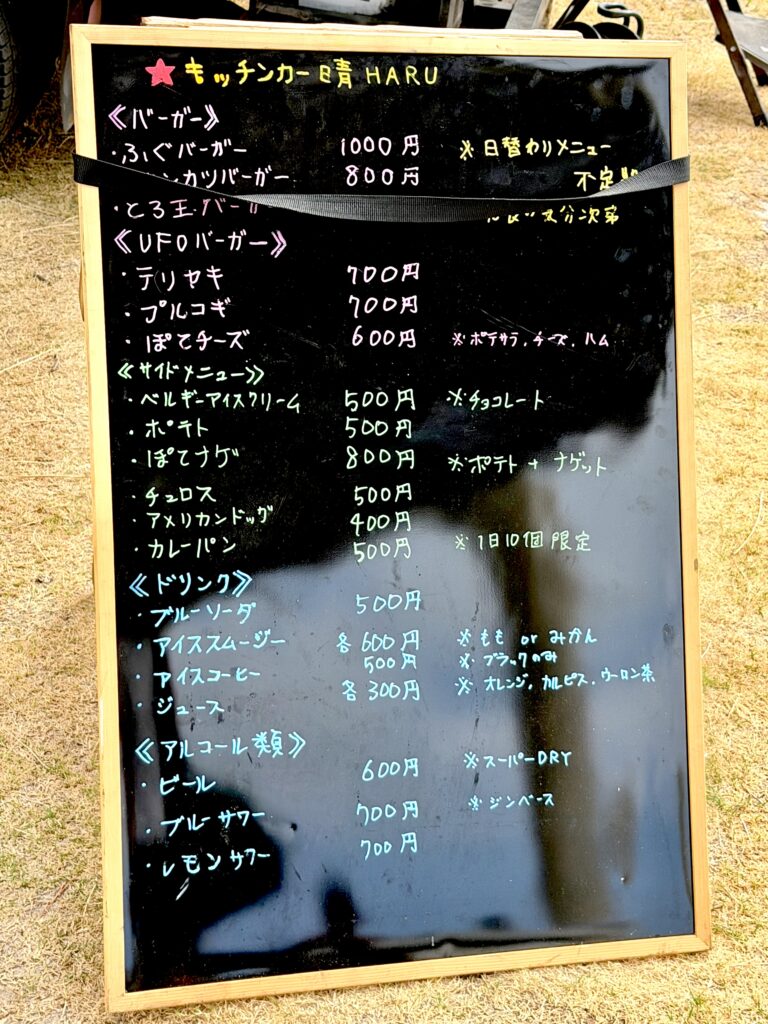 ★ キッチンカー 晴 HARU
《バーガー》
・ふぐバーガー 1000円 ※日替わりメニュー
ンカツバーガー 800円 不定
・とろ玉バーガー 次第
《UFOバーガー》
・テリヤキ 700円
・プルコギ 700円
・ぽてチーズ 600円 ※ポテサラ,チーズ,ハム
《サイドメニュー》
・ベルギーアイスクリーム 500円 ※チョコレート
・ポテト 500円
・ぽてナゲ 800円 ※ポテト+ナゲット
・チュロス 500円
・アメリカンドッグ 400円
・カレーパン 500円 ※1日10個限定
《ドリンク》
・ブルーソーダ 500円
・アイススムージー 各600円 ※もも or みかん
・アイスコーヒー 500円 ※ブラックのみ
・ジュース 各300円 ※オレンジ,カルピス,ウーロン茶
《アルコール類》
・ビール 600円 ※スーパーDRY
・ブルーサワー 700円 ※ジンベース
・レモンサワー 700円